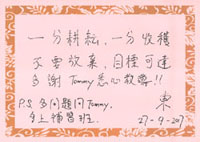 一分耕耘，一分收穫
不要放棄，目標可達
多謝Tommy悉心教導!!
P.S. 多問題問Tommy.
多上補習班.
東
27-9-2017